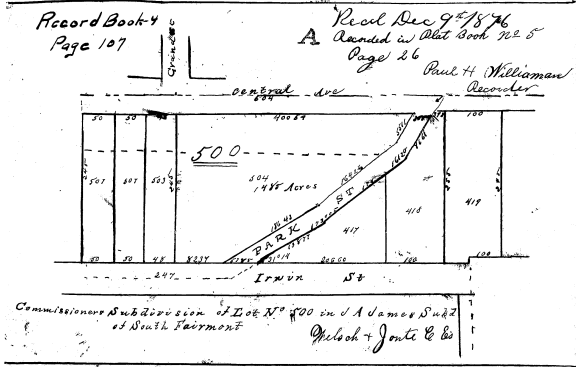 Record Book 4
Page 107
A
Recd Dec 9th 1876
Recorded in Plat Book No 5
Page 26
Paul H Williaman
Recorder
Central Ave
604
50
50
400 64
100
500
507
507
503
504
1 485 Acres
PARK ST
417
418
419
50
50
48
8237
31°14
206 60
100
100
247
Irwin St
Commissioners Subdivision of Lot No 500 in J A James Subd
of South Fairmont
Welsch + Jonte C Es